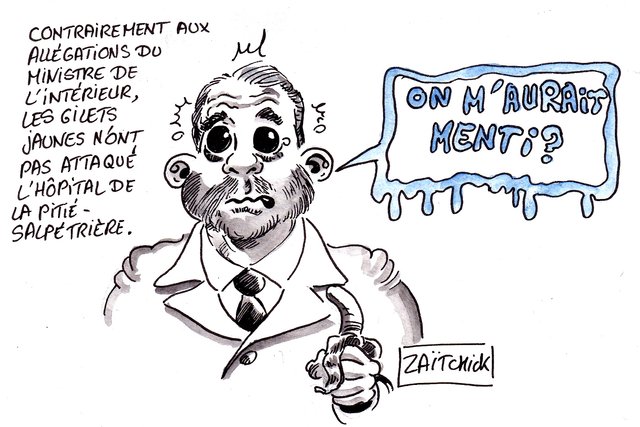 CONTRAIREMENT AUX
ALLÉGATIONS DU
MINISTRE DE
L'INTÉRIEUR,
LES GILETS
JAUNES N'ONT
PAS ATTAQUÉ
L'HÔPITAL DE
LA PITIÉ-
SALPÉTRIÈRE.
ON M'AURAIT
MENTi?
ZAÏTCHICK